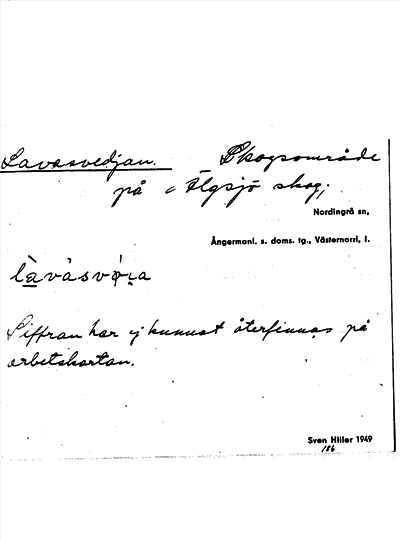 Lavasvedjan. Skogsområde
på Älgsjö skog;
Nordingrå sn,
Ångermanl. s. doms. tg., Västernorrl. l.
Siffran har ej kunnat återfinnas på
arbetskartan.
Sven Hiller 1949
186